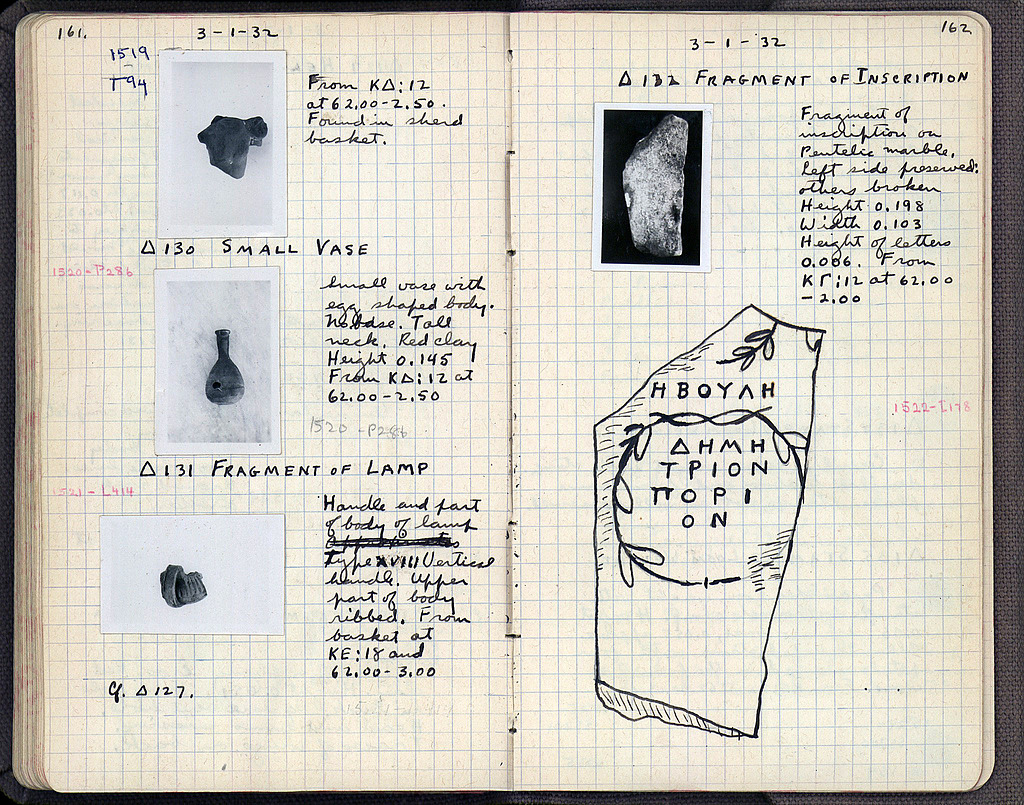 161.
3-1-32
1519
T94
From KΔ:12
at 62.00-2.50.
Found in sherd
basket.
Δ130 SMALL VASE
1520-P286
Small vase with
egg shaped body.
No base. Tall
neck. Red clay
Height 0.145
From KΔ:12 at
62.00-2.50
1520-P286
Δ131 FRAGMENT OF LAMP
1521-L414
Handle and part
of body of lamp
type XVIII Vertical
handle. Upper
part of body
ribbed. From
basket at
KE:18 and
62.00-3.00
Cf. Δ127.
162
3-1-32
Δ132 FRAGMENT OF INSCRIPTION
Fragment of
inscription on
Pentelic marble.
Left side preserved:
others broken
Height 0.198
Width 0.103
Height of letters
0.006. From
KΓ:12 at 62.00
-2.00
ΗΒΟΥΛΗ
1522-I178
ΔΗΜΗ
ΤΡΙΟΝ
ΠΟΡΙ
ΟΝ